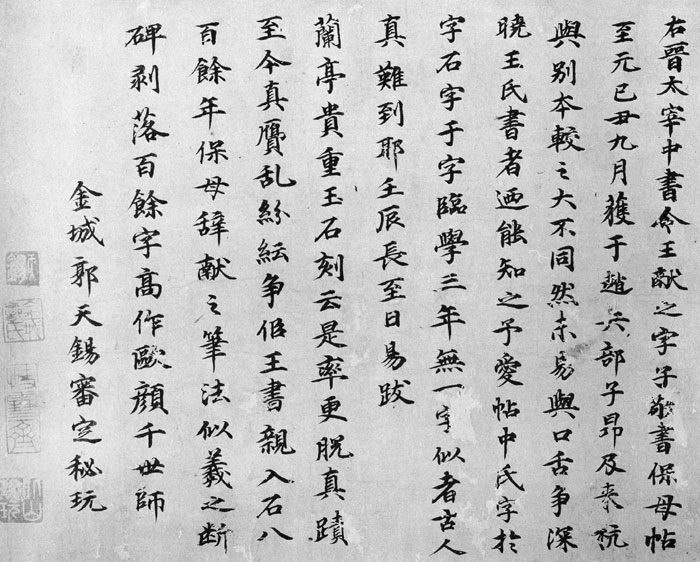 右晉太宰中書令王献之字子敬書保母帖
至元己丑九月獲于趙兵部子昂及来杭
與别本較之大不同然未易與口舌争深
曉王氏書者廼能知之予愛帖中氏字於
字石字于字臨學三年無一字似者古人
真難到耶壬辰長至日易跋
蘭亭貴重玉石刻云是率更脱真蹟
至今真贋乱紛紜争佀王書親入石八
百餘年保母辞献之筆法似羲之断
碑剥落百餘字高作歐顔千世師
金城郭天錫審定秘玩